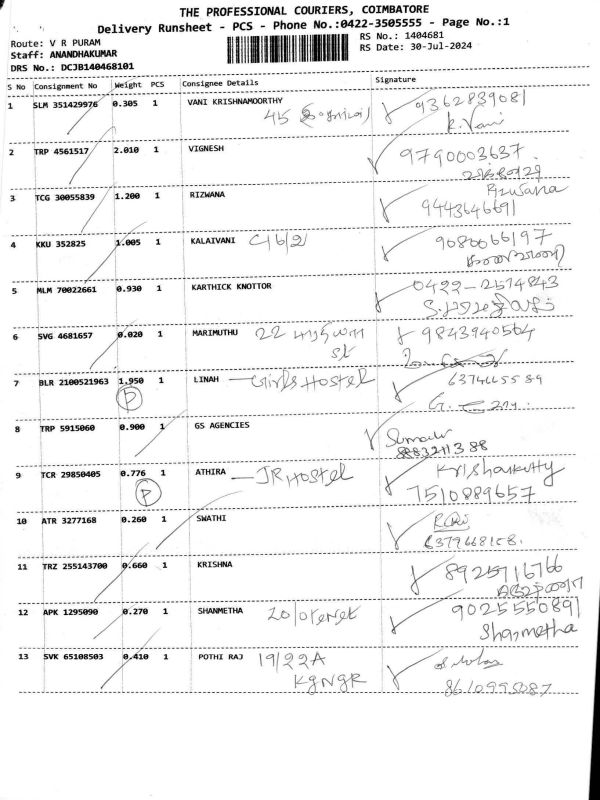 THE PROFESSIONAL COURIERS, COIMBATORE
Delivery Runsheet - PCS - Phone No.:0422-3505555 - Page No.:1
Route: V R PURAM
RS No.: 1404681
Staff: ANANDHAKUMAR
RS Date: 30-Jul-2024
DRS No.: DCJB140468101
S No Consignment No Weight PCS Consignee Details Signature
1 SLM 351429976 0.305 1 VANI KRISHNAMOORTHY 9362839081
45
K. Vani
2 TRP 4561517 2.010 1 VIGNESH 9790003637
3 TCG 30055839 1.200 1 RIZWANA Rizwana
9443646691
4 KKU 352825 1.005 1 KALAIVANI C16/2 9080066197
5 MLM 70022661 0.930 1 KARTHICK KNOTTOR 0422-2574843
6 SVG 4681657 0.020 1 MARIMUTHU 22 9843940564
st
7 BLR 2100521963 1.950 1 LINAH - Girls Hostel 6374665589
P
8 TRP 5915060 0.900 1 GS AGENCIES
9 TCR 29850405 0.776 1 ATHIRA - JR Hostel Krishankutty
P 7510889657
10 ATR 3277168 0.260 1 SWATHI
6379668158.
11 TRZ 255143700 0.660 1 KRISHNA 8925716766
12 APK 1295090 0.270 1 SHANMETHA 9025550891
Shanmetha
13 SVK 65108503 0.410 1 POTHI RAJ 19/22A
KGNGR 8610995087